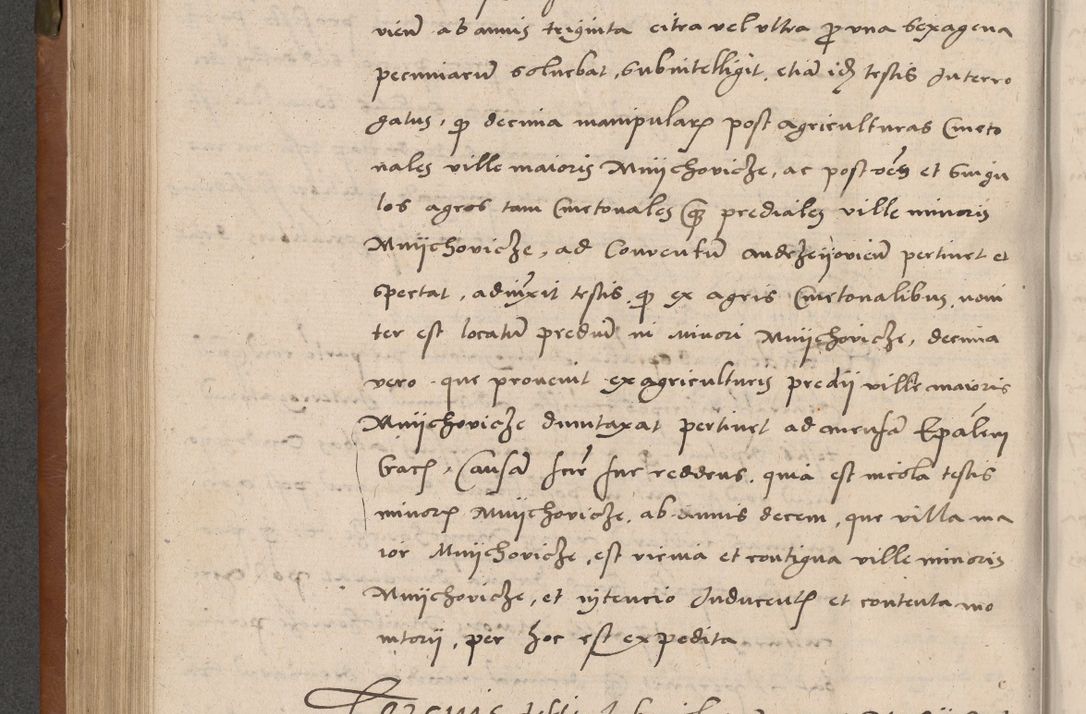 vien̄ ab annis triginta citra vel ultra ꝓ una sexagena
pecuniarum̄ solvebat, subintelligit, etiā idē testis Interro
gatus, ꝙ decima manipularꝫ post agriculturas Cmeto
nales ville maioris Mnijchovicze, ac post oēs et singu
los agros tam Cmetonales ꝙ prediales ville minoris
Mnijchovicze, ad Conventū Andrzeijovien̄ pertinet et
spectat, adiūxit testis ꝙ ex agris Cmetonalibus, novi
ter est locatū prediū in minori Mnijchovicze, decima
vero que provenit ex agriculturis predii ville maioris
Mnijchovicze dumtaxat pertinet ad mensā Epālem
Crac, Causā scīe sue reddens, quia est incola testis
minorꝫ Mnijchovicze, ab annis decem, que villa ma
ior Mnijchovicze, est vicina et contigua ville minoris
Mnijchovicze, et intencio Inducentꝫ et contenta mo
nitorii, per hoc est expedita